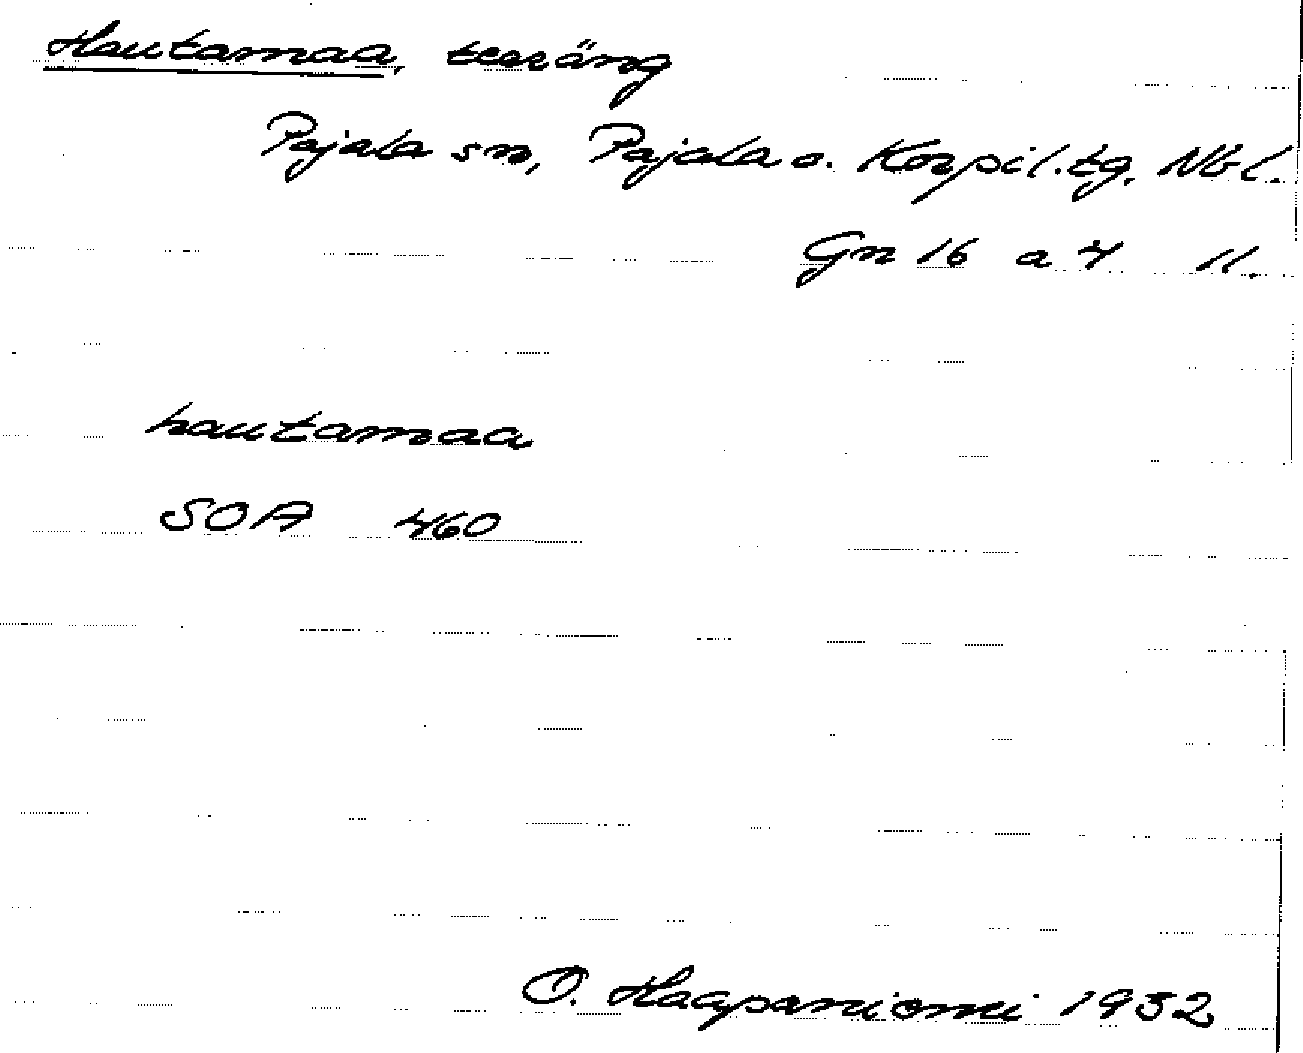 Hautamaa, teräng
Pajala sn, Pajala o. Korpil.tg, Nbl.
Gn 16 a 4 11.
hautamaa
SOA 460
O. Haapaniemi 1932